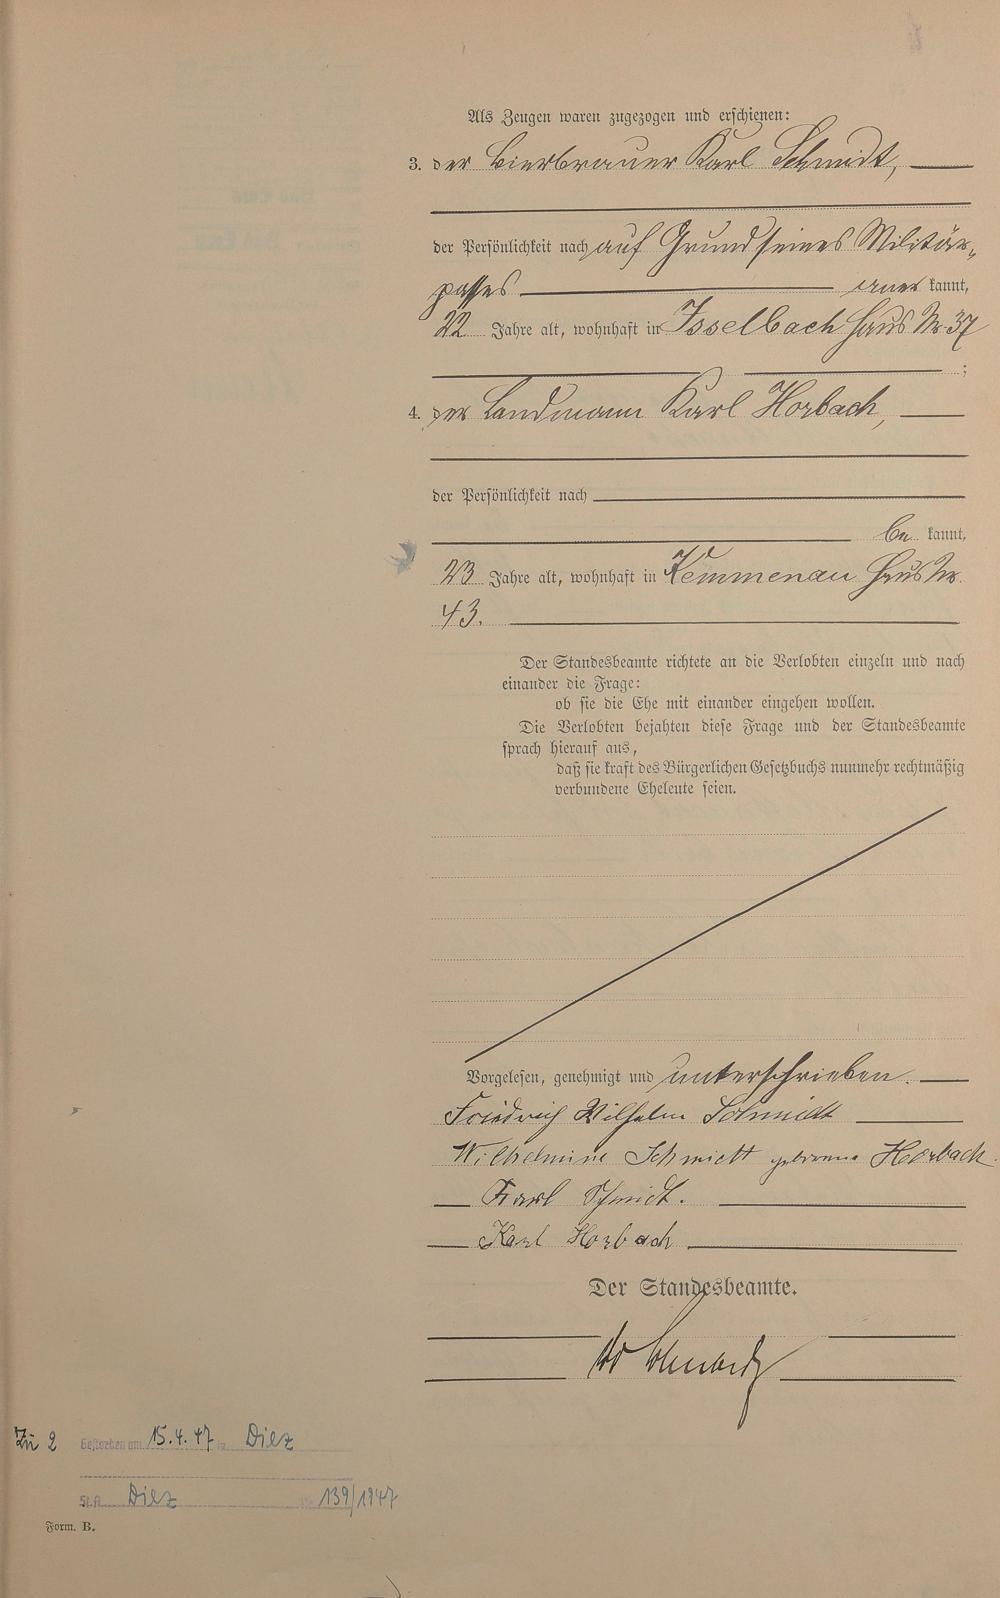 Als Zeugen waren zugezogen und erschienen:
3. der Bierbrauer Karl Schmidt,
der Persönlichkeit nach auf Grund seines Militär-
passes aner kannt,
22 Jahre alt, wohnhaft in Isselbach Haus Nr. 37
;
4. der Landmann Karl Horbach,
der Persönlichkeit nach
be kannt,
23 Jahre alt, wohnhaft in Kemmenau Haus Nr.
43.
Der Standesbeamte richtete an die Verlobten einzeln und nach
einander die Frage:
ob sie die Ehe mit einander eingehen wollen.
Die Verlobten bejahten diese Frage und der Standesbeamte
sprach hierauf aus,
daß sie kraft des Bürgerlichen Gesetzbuchs nunmehr rechtmäßig
verbundene Eheleute seien.
Vorgelesen, genehmigt und unterschrieben.
Friedrich Wilhelm Schmidt
Wilhelmine Schmidt geborene Horbach.
Karl Schmidt.
Karl Horbach
Der Standesbeamte.
Zu 2 Gestorben am 15.4.47 in Diez
St.A. Diez Nr. 139/1947
Form. B.